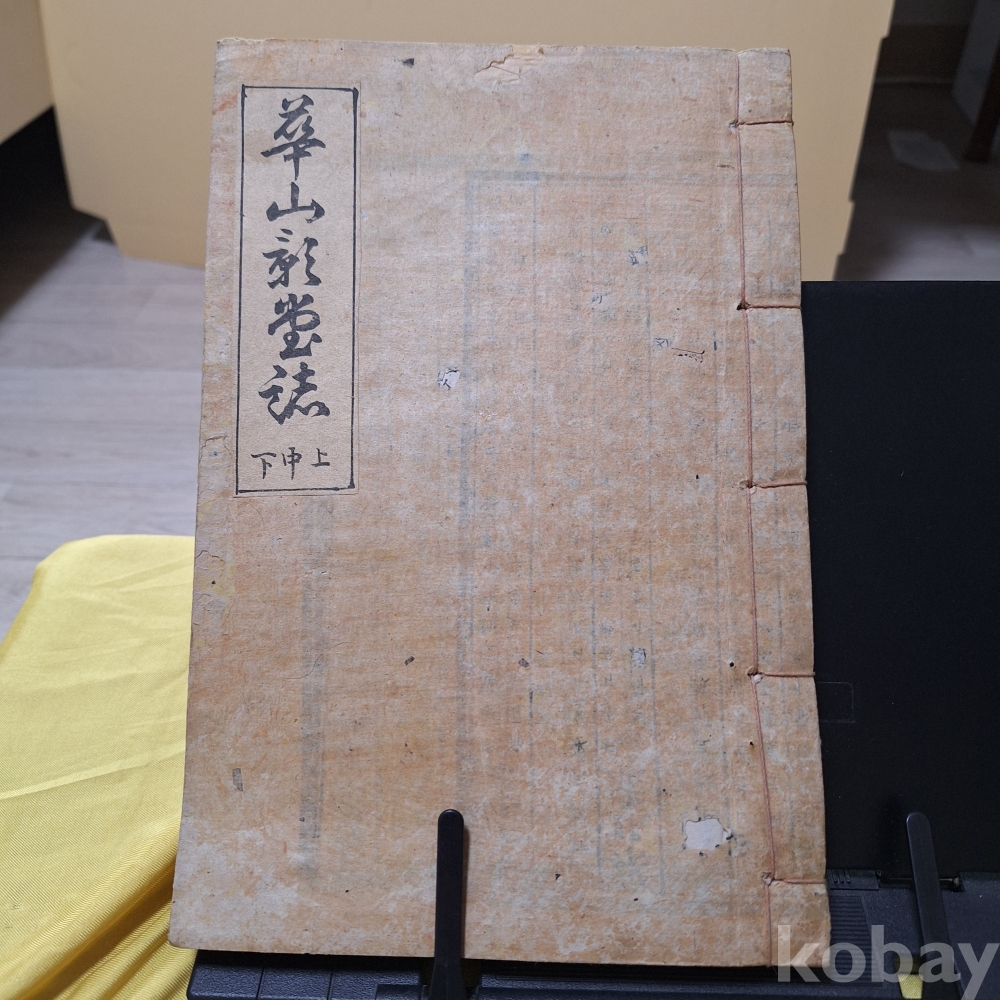 華山影堂誌
上中下
kobay